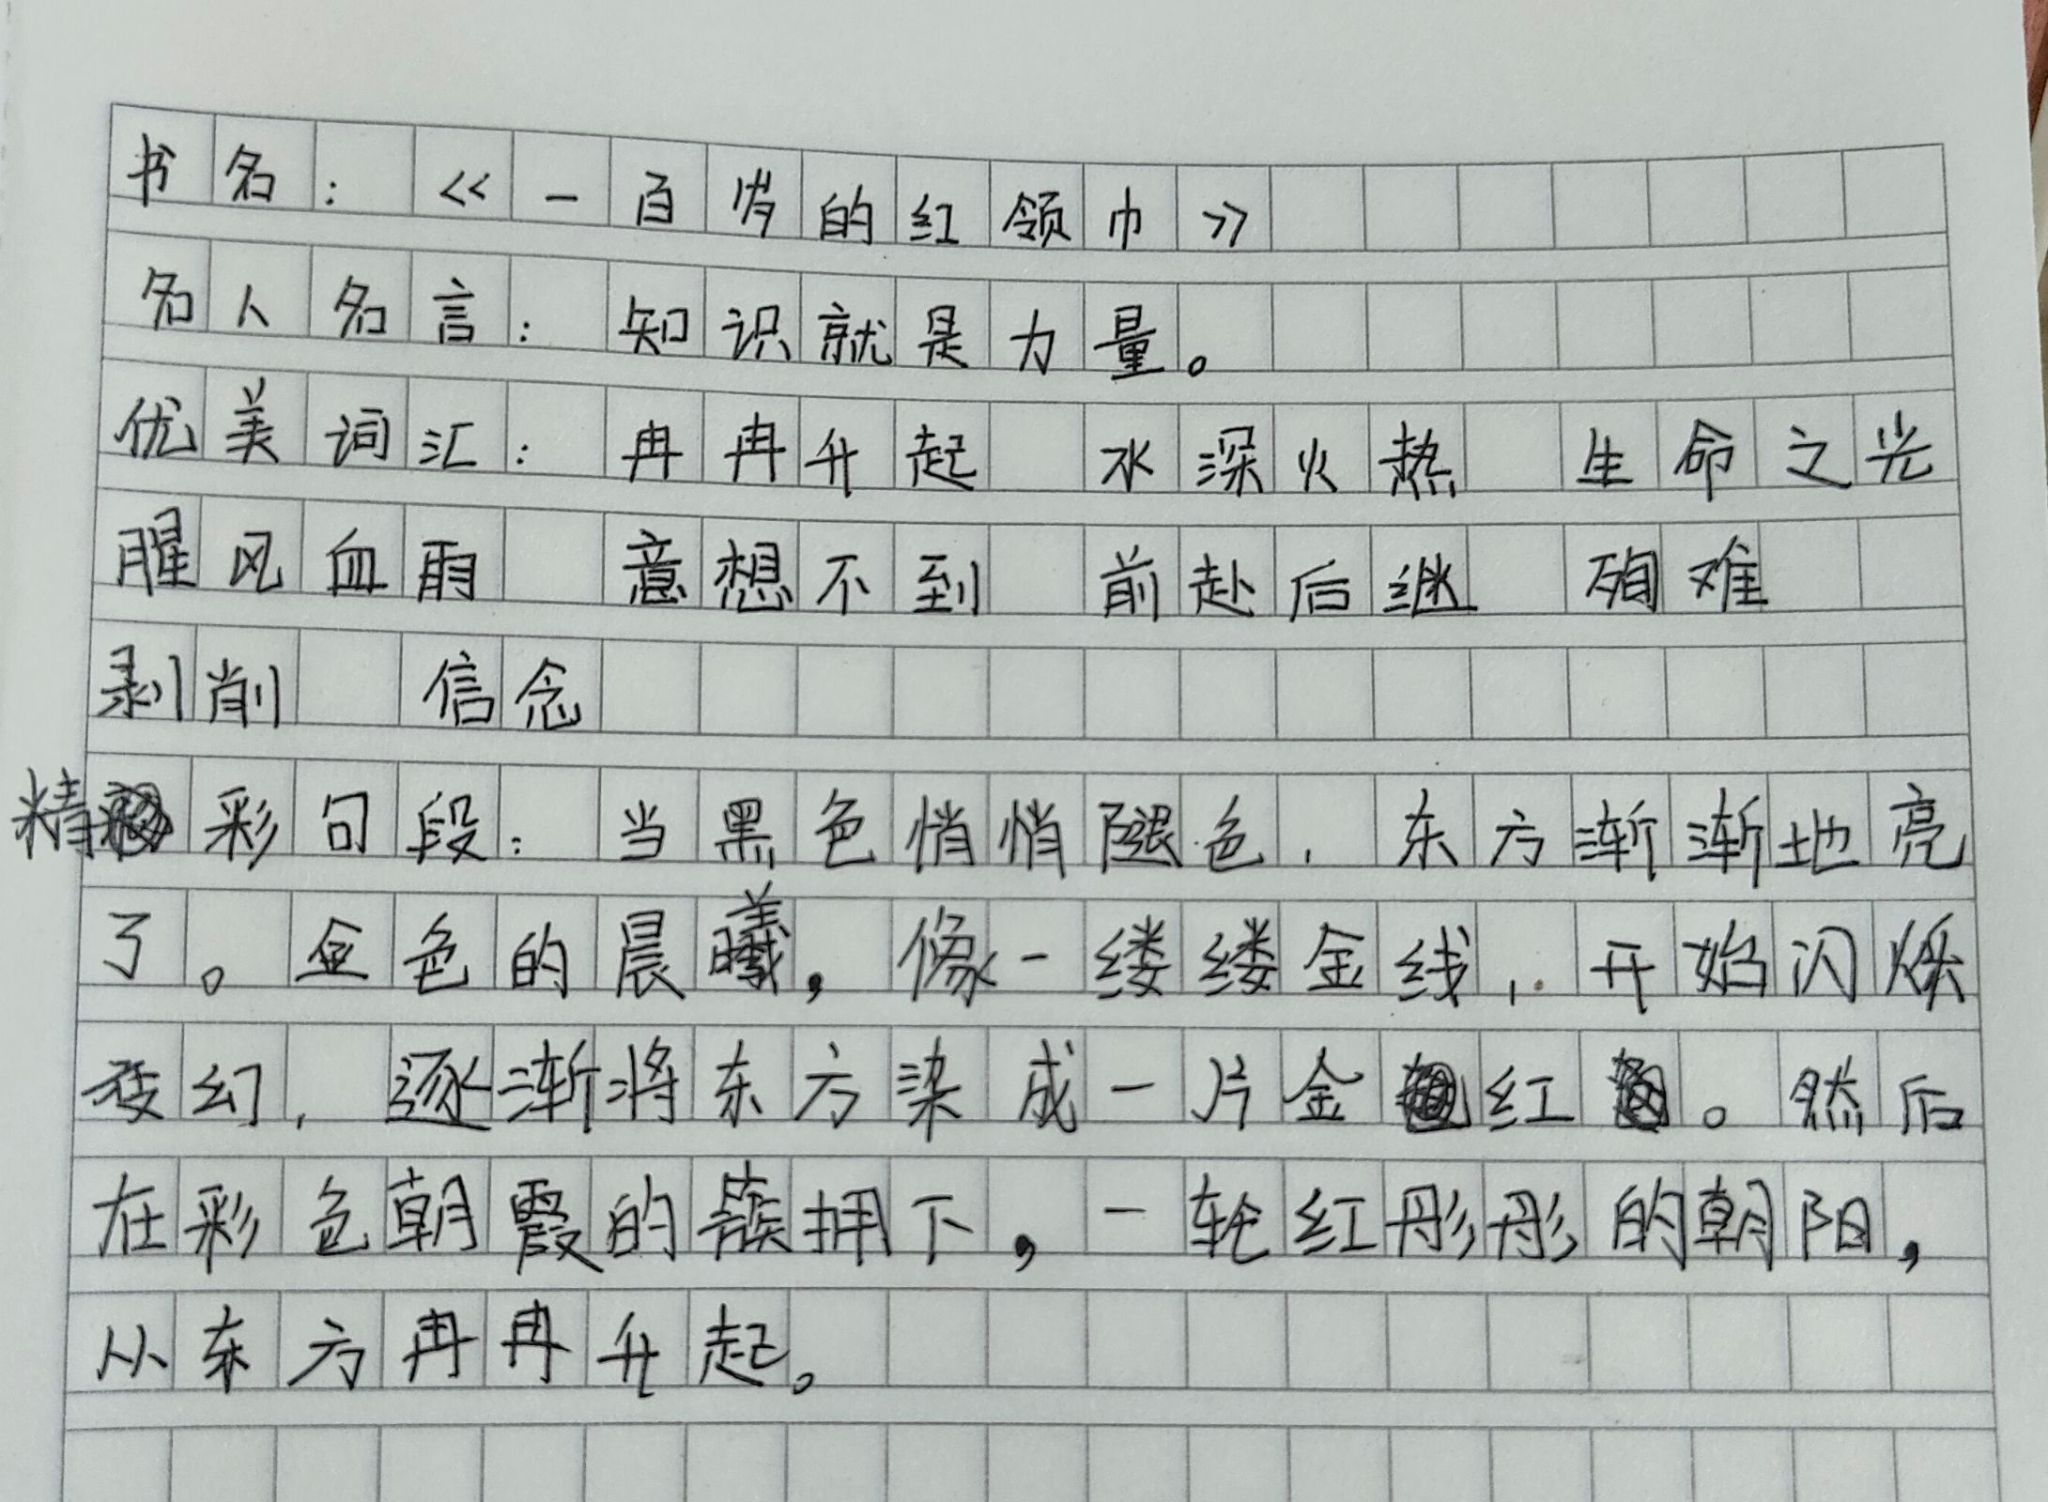 书名：《一百岁的红领巾》
名人名言：知识就是力量。
优美词汇：冉冉升起 水深火热 生命之光
腥风血雨 意想不到 前赴后继 殉难
剥削 信念
精彩句段：当黑色悄悄隐色，东方渐渐地亮
了。金色的晨曦，像一缕缕金线，开始闪烁
变幻，逐渐将东方染成一片金红。然后
在彩色朝霞的簇拥下，一轮红彤彤的朝阳，
从东方冉冉升起。